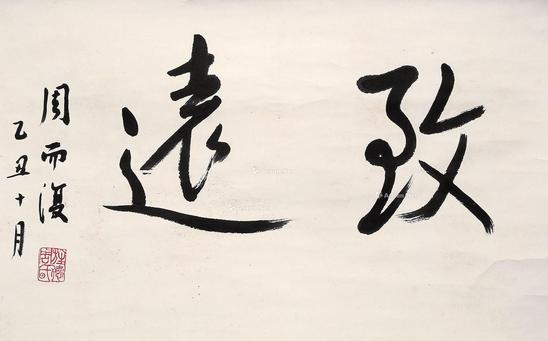 致遠
周而復
乙丑十月